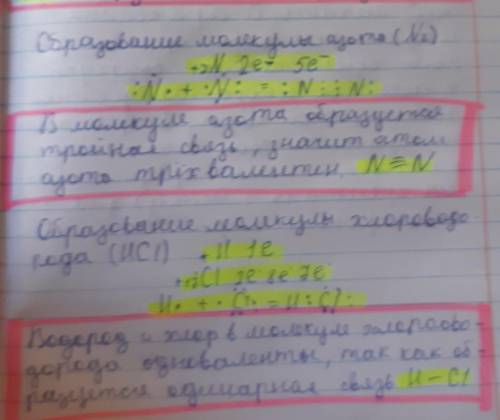 Образование молекулы азота (N₂)
+7N 2e⁻ 5e⁻
:N• + •N: = :N⋮⋮N:
В молекуле азота образуется
тройная связь, значит атом
азота трёхвалентен. N≡N
Образование молкулы хлороводо-
рода (HCl) +1H 1e
+17Cl 2e 8e 7e
H• + •Cl: = H:Cl:
Водород и хлор в молкуле хлорово-
дорода одноваленты, так как об-
разуется одинарная связь H–Cl